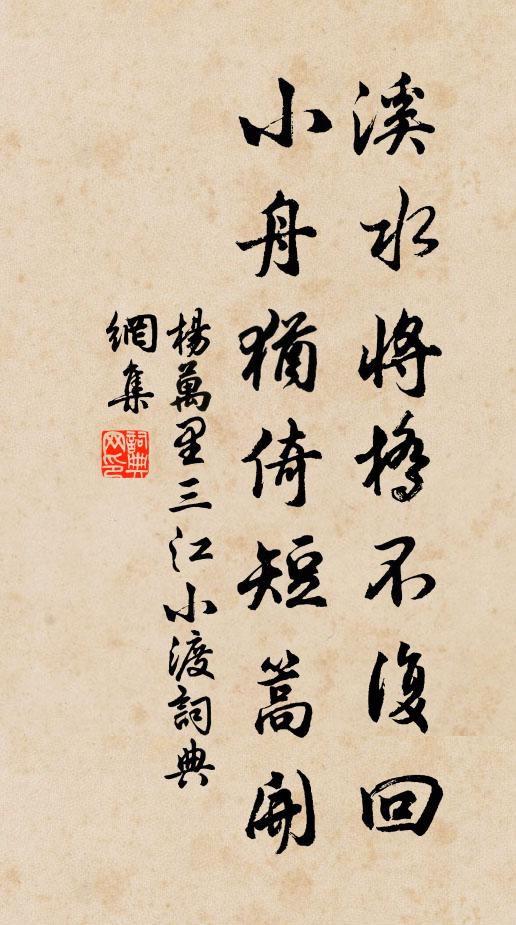 溪水將橋不復回
小舟猶倚短篙開
楊萬里三江小渡詞典
網集
詞典
网印